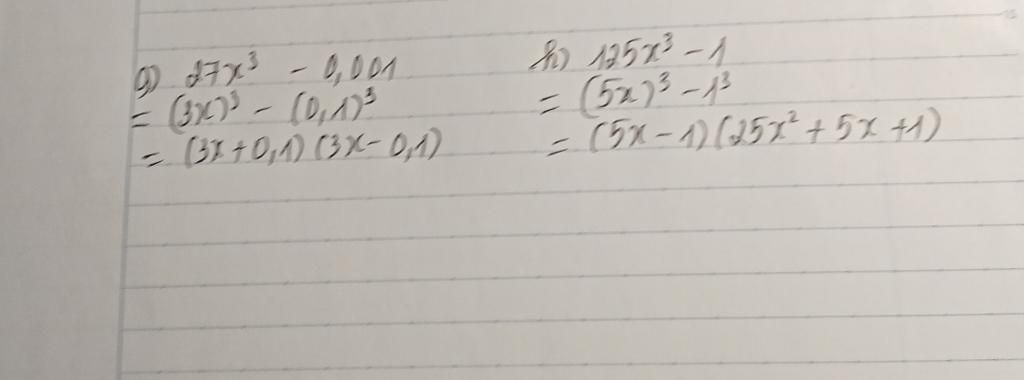 g) 27x³ - 0,001
= (3x)³ - (0,1)³
= (3x+0,1)(3x-0,1)
h) 125x³ - 1
= (5x)³ - 1³
= (5x - 1)(25x² + 5x + 1)